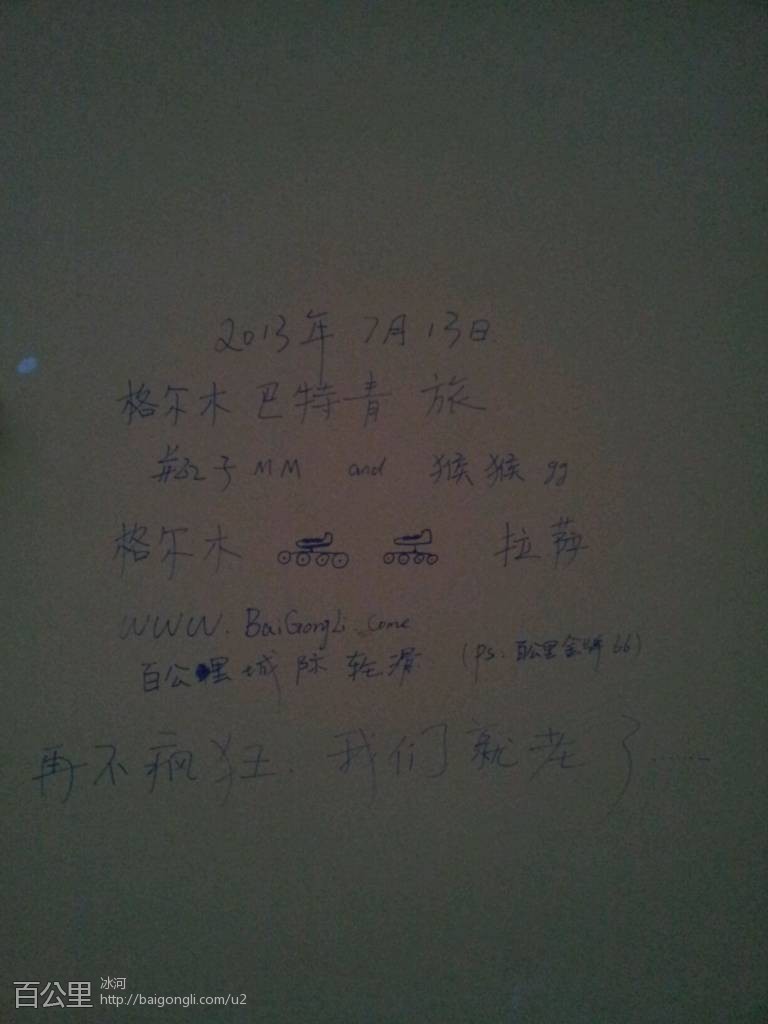 2013年 7月13日
格尔木巴特青旅
子MM and 猴猴gg
格尔木 拉萨
WWW.BaiGongLi.come
百公里城际轮滑 (PS.百公里金牌66)
再不疯狂.我们就老了......
百公里 冰河
http://baigongli.com/u2